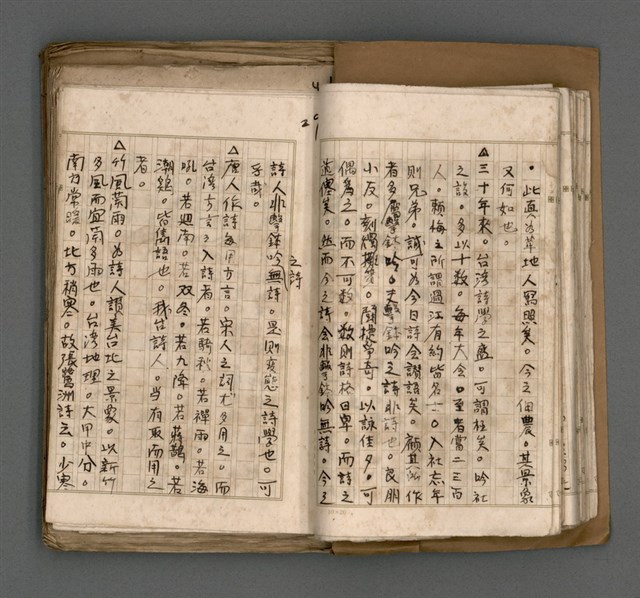 。此真為草地人寫照矣。今之佃農。其景象
又何如也。
△三十年來。台湾詩學之盛。可謂極矣。吟社
之設。多以十數。每年大会。至者當二三百
人。賴悔之所謂過江有約皆名士。入社忘年
則兄弟。誠可為今日詩会讚誦矣。顧其所作
者多屬擊鉢吟。夫擊鉢吟之詩非詩也。良朋
小友。刻燭攤箋。鬪捷爭奇。以詠佳夕。可
偶為之。而不可數。數則詩格日卑。而詩之
道僅矣。然而今之詩会非擊鉢吟無詩。今之
詩人非擊鉢吟無詩。是則變態之詩學也。可
之詩
乎哉。
△唐人作詩每用方言。宋人之詞尤多用之。而
台湾方言之入詩者。若騎秋。若禪雨。若海
吼。若迴南。若双冬。若九降。若
潮鷄。皆雋語也。我台詩人。當有取而用之
者。
△竹風蘭雨。為詩人讚美台北之景象。以新竹
多風而宜蘭多雨也。台湾地理。大甲中分。
南方常暖。北方稍寒。故張鷺洲詩云。少寒
4
29